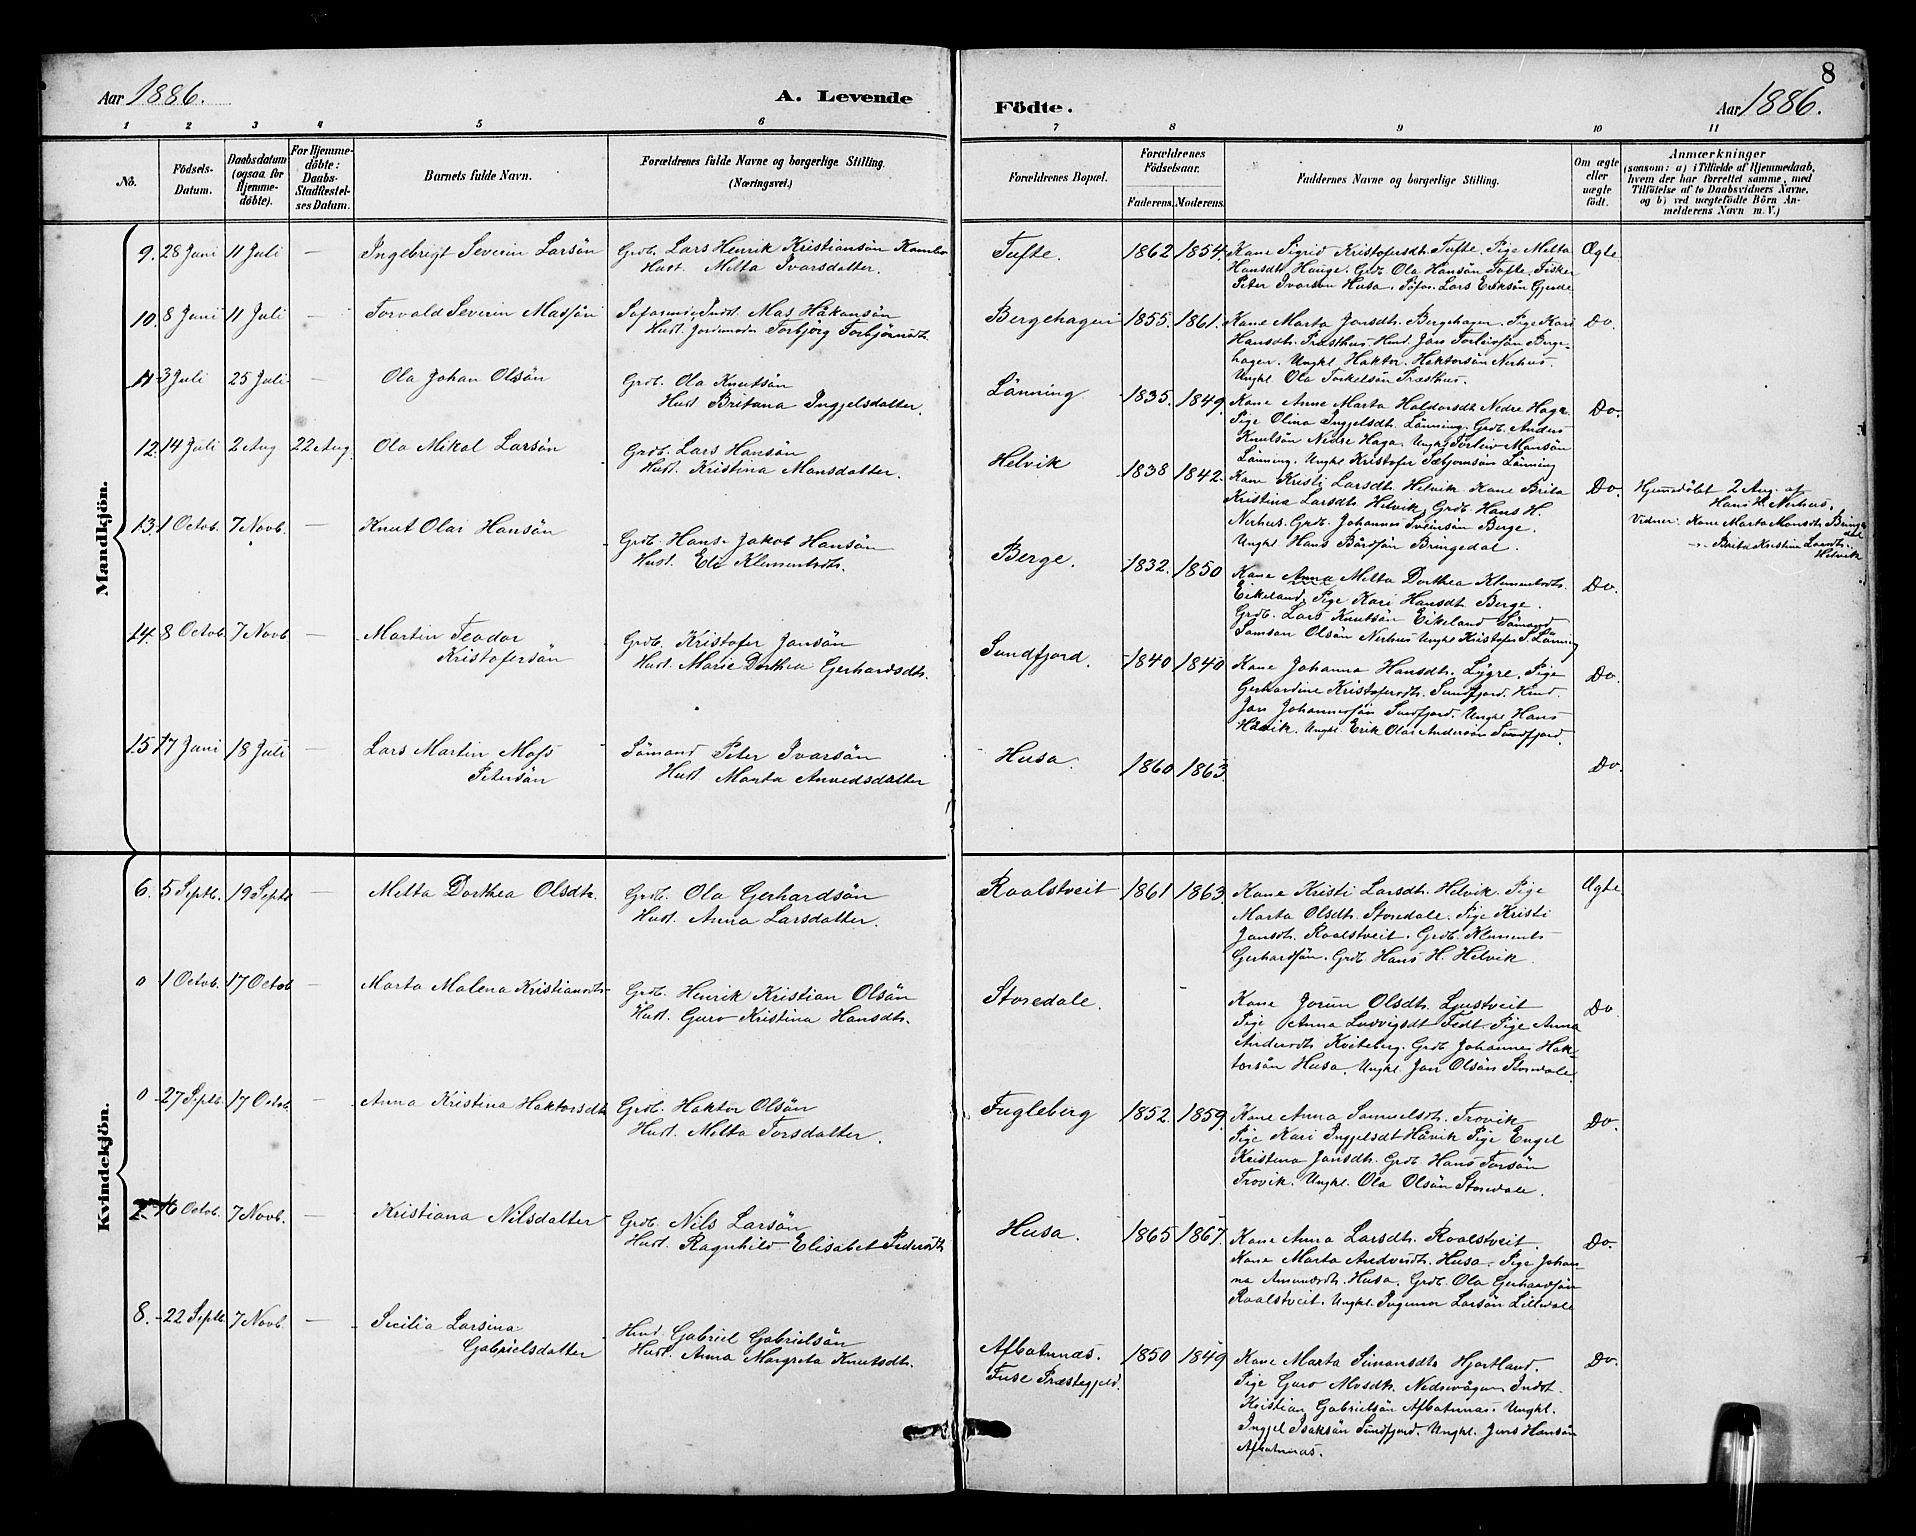 Aar 1886.
A. Levende
Födte.
Aar 1886.
8
1 2 3 4 5 6 7 8 9 10 11
No.
Födsels-Datum.
Daabsdatum (ogsaa for Hjemme-döbte).
For Hjemme-döbte: Daabs-Stadfæstel-ses Datum.
Barnets fulde Navn.
Forældrenes fulde Navne og borgerlige Stilling. (Næringsvei.)
Forældrenes Bopæl.
Forældrenes Födselsaar.
Faderens. Moderens.
Faddernes Navne og borgerlige Stilling.
Om ægte eller uægte födt.
Anmærkninger
(saasom: a) i Tilfælde af Hjemmedaab, hvem der har forrettet samme, med Tilföielse af to Daabsvidners Navne, og b) ved uægtefödte Börn An-melderens Navn m. V.)
Mandkjön.
9. 28 Juni 11 Juli — Ingebrigt Severin Larsön
Grdb. Lars Henrik Kristiansön
Hust. Metta Ivarsdatter.
Tufte. 1862 1854.
Kone Sigrid Kristofersdt. Tufte. Pige Metta
Hansdt. Hauge. Grdb. Ola Hansön Tufte. Fisker
Peter Ivarsön Husa. Söfar. Lars Eriksön Gjerde
Ægte
10. 8 Juni 11 Juli — Torvald Severin Massön
Mas Håkansön
Hust. Jordemoder Torbjörg Torbjörnsdt.
Bergehagen 1855. 1861.
Kone Marta Jonsdt. Bergehagen. Pige Kari
Hansdt. Præsthus. Husd. Jon Torleivsön Berge-
hagen. Ungkl. Haktor Haktorsön Nerhus.
Ungkl. Ola Torkelsön Præsthus.
Do.
11. 3 Juli 25 Juli — Ola Johan Olsön
Grdb. Ola Knutsön
Hust. Britana Ingjelsdatter.
Lönning 1835. 1849.
Kone Anne Marta Haldorsdt. Nedre Haga.
Pige Olina Ingjelsdt. Lönning. Grdb. Anders
Knutsön Nedre Haga. Ungkl. Torleiv Monsön
Lönning. Ungkl. Kristofer Sæbjörnsön Lönning
Do.
12. 14 Juli 2 Aug 22 Aug. Ola Mikal Larsön
Grdb. Lars Hansön
Hust. Kristina Monsdatter.
Helvik 1838 1842.
Kone Kristi Larsdt. Helvik. Kone Brita
Kristina Larsdt. Helvik. Grdb. Hans H.
Nerhus. Grdb. Johannes Sveinsön Berge.
Ungkl. Hans Bårdsön Bringedal.
Do.
Hjemmedöbt 2 Aug. af
Hans H. Nerhus.
Vidner: Kone Marta Monsdt. Bringedal
" Brita Kristine Larsdt.
Helvik
13. 1 Octob. 7 Novb. — Knut Olai Hansön
Grdb. Hans Jakob Hansön
Hust. Eli Klementsdt.
Berge. 1832. 1850
Kone Anna Metta Dorthea Klementsdt.
Eikeland. Pige Kari Hansdt. Berge.
Grdb. Lars Knutsön Eikeland. Sömand
Samson Olsön Nerhus. Ungkl. Kristofer S. Lönning
Do.
14. 8 Octob. 7 Novb — Martin Teodor
Kristofersön
Grdb. Kristofer Jansön
Hust. Marie Dorthea Gerhardsdt.
Sundfjord. 1840 1840
Kone Johanna Hansdt. Lygre. Pige
Gerhardine Kristofersdt. Sundfjord. Husd.
Jan Johannessön Sundfjord. Ungkl. Hans
Håvik. Ungkl. Erik Olai Andersön Sundfjord.
Do.
15. 17 Juni 18 Juli — Lars Martin Moss
Petersön
Sömand Peter Ivarsön
Hust. Marta Anvedsdatter
Husa. 1860 1863.
Do.
Kvindekjön.
6. 5 Septb. 19 Septb — Metta Dorthea Olsdt.
Grdb. Ola Gerhardsön
Hust. Anna Larsdatter.
Raalstveit 1861 1863.
Kone Kristi Larsdt. Helvik. Pige
Marta Olsdt. Storedale. Pige Kristi
Jansdt. Raalstveit. Grdb. Klements
Gerhardsön. Grdb. Hans H. Helvik.
Ægte
0 1 Octob. 17 Octob — Marta Malena Kristiansdt.
Grdb. Henrik Kristian Olsön
Hust. Guro Kristina Hansdt.
Storedale.
Kone Jorun Olsdt. Ljustveit
Pige Anna Ludvigsdt Tedt. Pige Anna
Andersdt. Kviteberg. Grdb. Johannes Hak-
torsön Husa. Ungkl. Jon Olsön Storedale.
Do.
0 27 Septb. 17 Octob. — Anna Kristina Haktorsdt.
Grdb. Haktor Olsön
Hust. Metta Torsdatter.
Fugleberg 1852. 1859.
Kone Anna Samuelsdt. Trovik.
Pige Kari Ingjelsdt Håvik Pige Engel
Kristina Jonsdt. Grdb. Hans Torsön
Trovik. Ungkl. Ola Olsön Storedale.
Do.
7. 16 Octob. 7 Novb. — Kristiana Nilsdatter
Grdb. Nils Larsön
Hust. Ragnhild Elisabet Pedersdt.
Husa. 1865 1867.
Kone Anna Larsdt. Raalstveit.
Kone Marta Andvedsdt. Husa. Pige Johan-
na Amundsdt. Husa. Grdb. Ola Gerhardsön
Raalstveit. Ungkl. Ingemar Larsön Lilledale
Do.
8. 22 Septb. 7 Novb. — Secilia Larsina
Gabrielsdatter
Husd. Gabriel Gabrielsön
Hust. Anna Margreta Knutsdt.
Afbatnnæs.
Fuse Præstegjeld. 1850 1849
Kone Marta Simonsdt. Hjortland.
Pige Guro Mosdt. Nedrevågen. Indst.
Kristian Gabrielsön Afbatnnæs. Ungkl.
Ingjel Isaksön Sundfjord. Ungkl. Jens Hansön
Afbatnnæs.
Do.